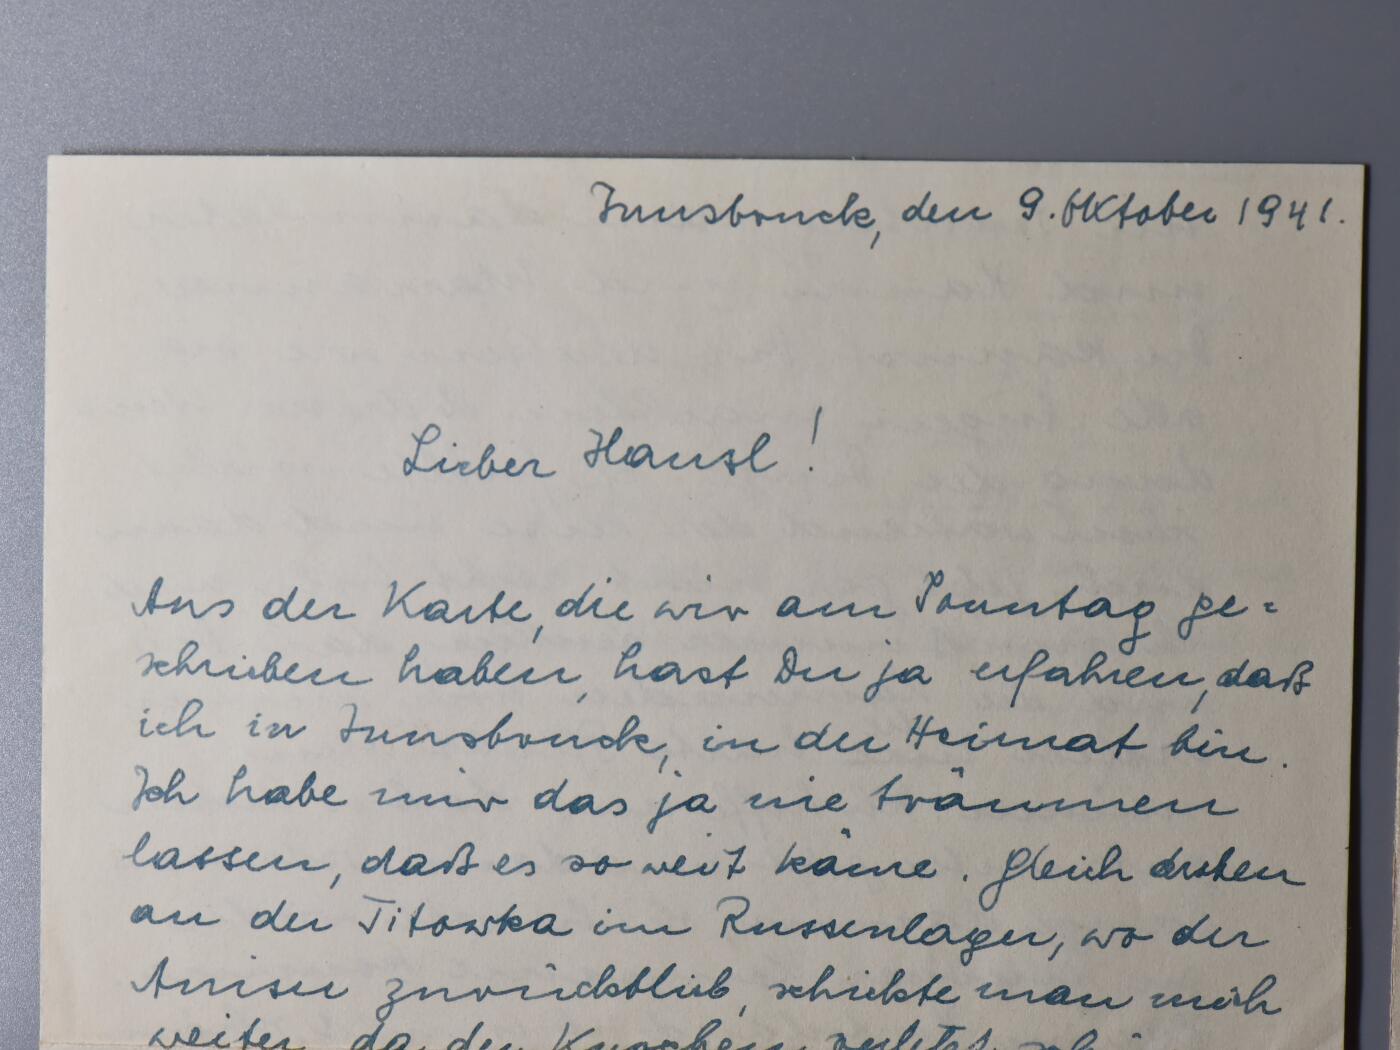 Innsbruck, den 9. Oktober 1941.
Lieber Hansl!
Aus der Karte, die wir am Sonntag ge=
schrieben haben, hast Du ja erfahren, daß
ich in Innsbruck, in der Heimat bin.
Ich habe mir das ja nie träumen
lassen, daß es so weit käme. Gleich drüben
an der Titowka im Russenlager, wo der
zurückblieb, schickte man mich
weiter, da der Knochen verletzt